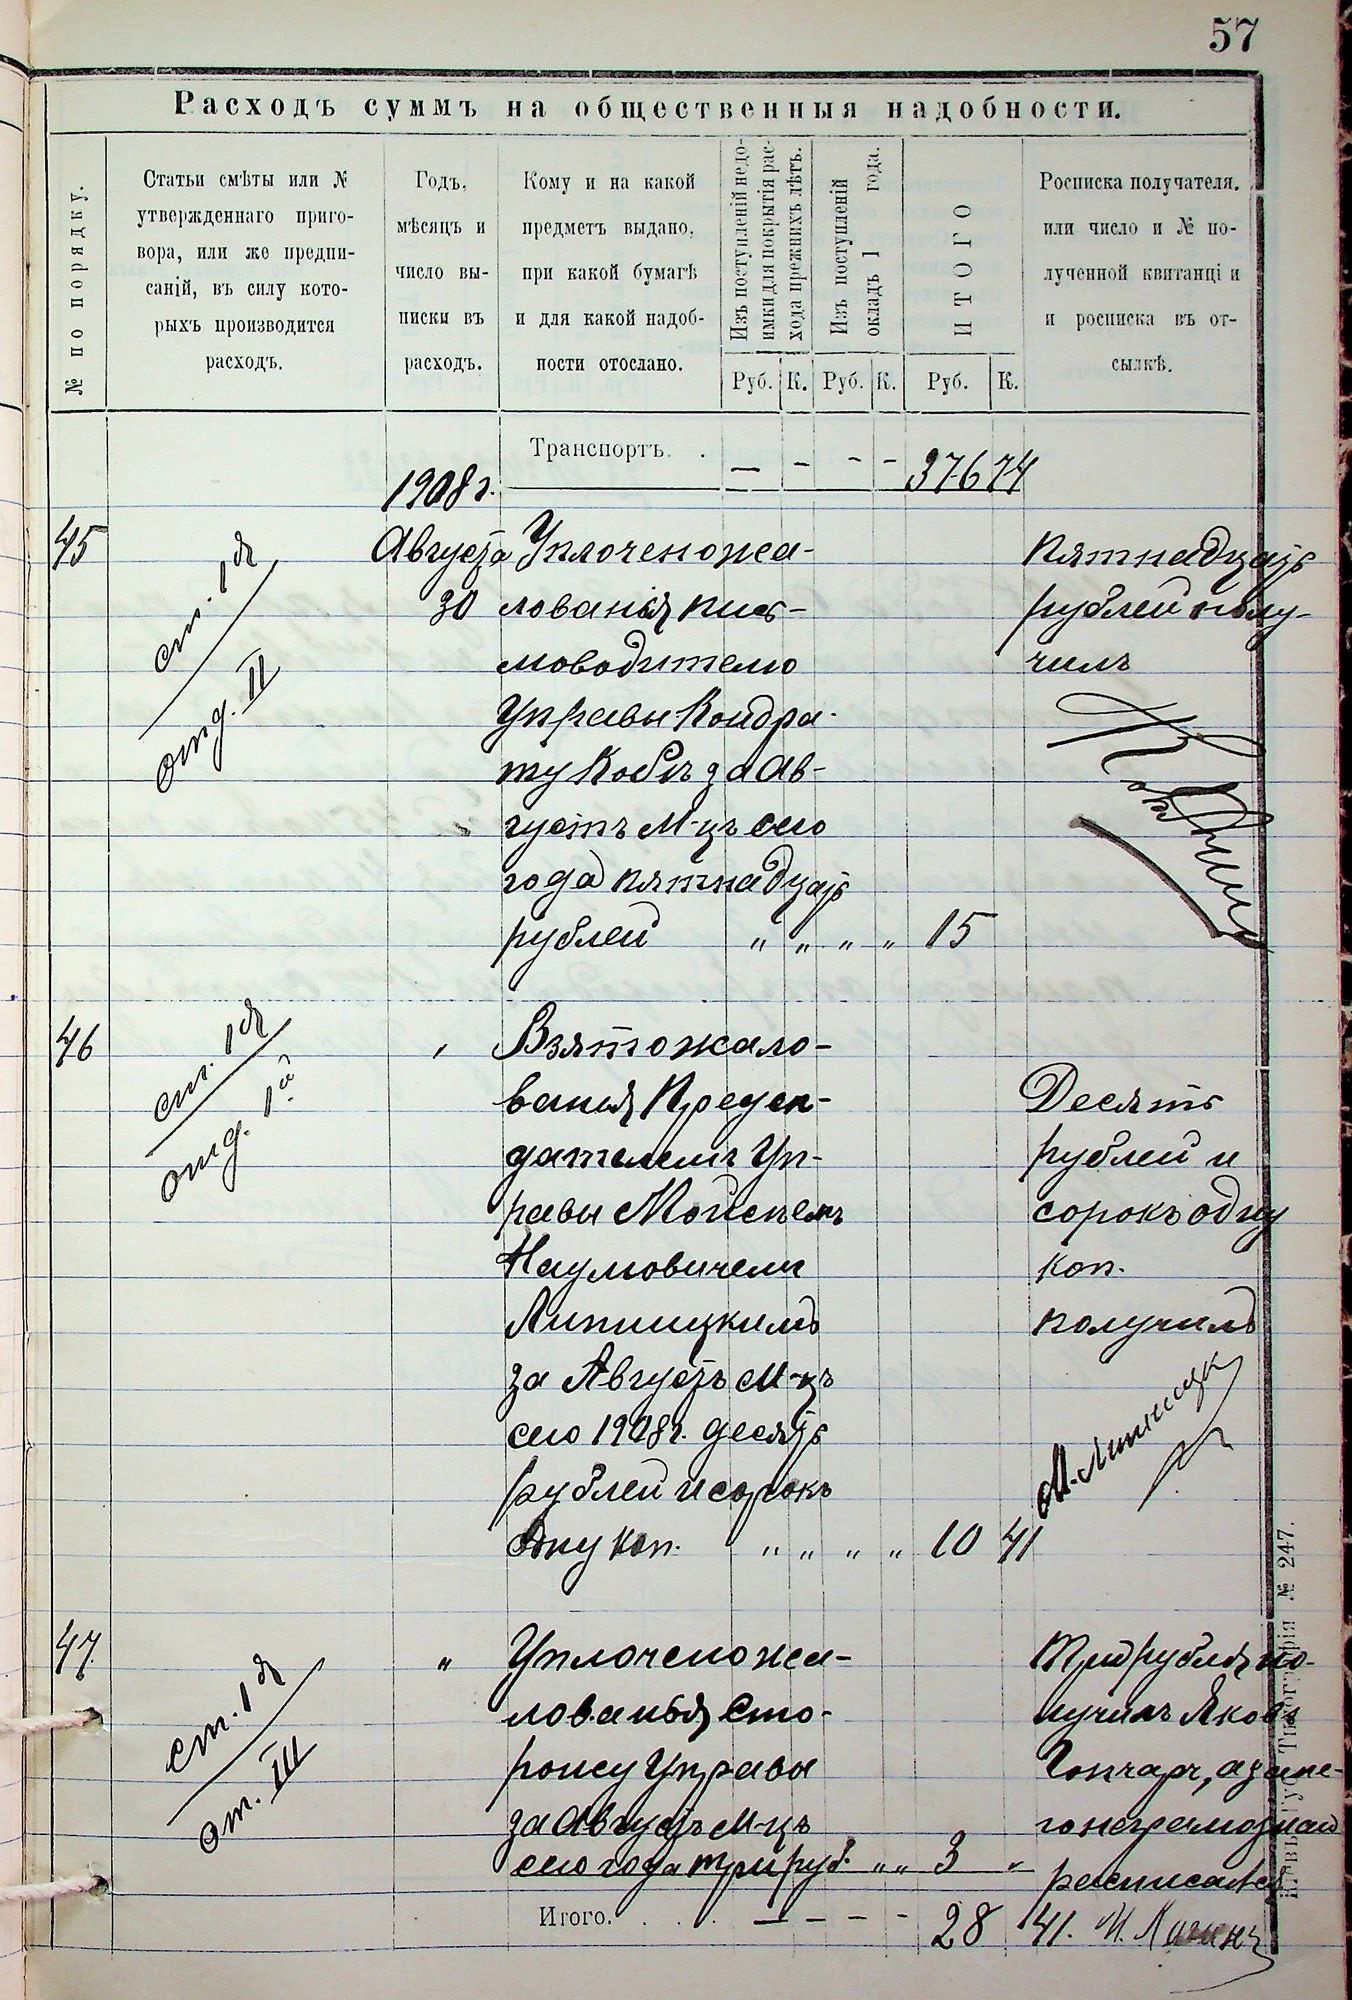 57
Расходъ суммъ на общественныя надобности.
№ по порядку.
Статьи смѣты или №
утвержденнаго приго-
вора, или же предпи-
саній, въ силу кото-
рыхъ производится
расходъ.
Годъ,
мѣсяцъ и
число вы-
писки въ
расходъ.
Кому и на какой
предметъ выдано,
при какой бумагѣ
и для какой надоб-
ности отослано.
Изъ поступленій недо-
имки для покрытія рас-
хода прежнихъ лѣтъ.
Изъ поступленій
окладъ 1 года.
ИТОГО
Росписка получателя.
или число и № по-
лученной квитанці и
и росписка въ от-
сылкѣ.
Руб. К. Руб. К. Руб. К.
Транспортъ. . — - - - 376 74
1908 г.
45
ст. 1я
отд. II
Августа
30
Уплочено жа-
лованья пись-
моводителю
Управы Кондра-
ту Кобцъ за Ав-
густъ М-цъ сего
года пятнадцать
рублей " " " " 15
Пятнадцать
рублей полу-
чилъ
46
ст. 1я
отд. 1й
Взято жало-
ванья Предсѣ-
дателемъ Уп-
равы Мойсѣемъ
Наумовичемъ
Липницкимъ
за Августъ М-цъ
сего 1908 г. десять
рублей и сорокъ
одну коп. " " " " 10 41
Десять
рублей и
сорокъ одну
коп.
получилъ
М. Липницк
47.
ст. 1я
от. III
"
Уплочено жа-
лованья Сто-
рожу Управы
за Августъ М-цъ
сего года три руб. " " 3 "
Три рубля по-
лучилъ Яковъ
Гончаръ, а за не-
го неграмотнаго
расписался
Итого. . . . — - - - 28 41.
Типографія № 247.